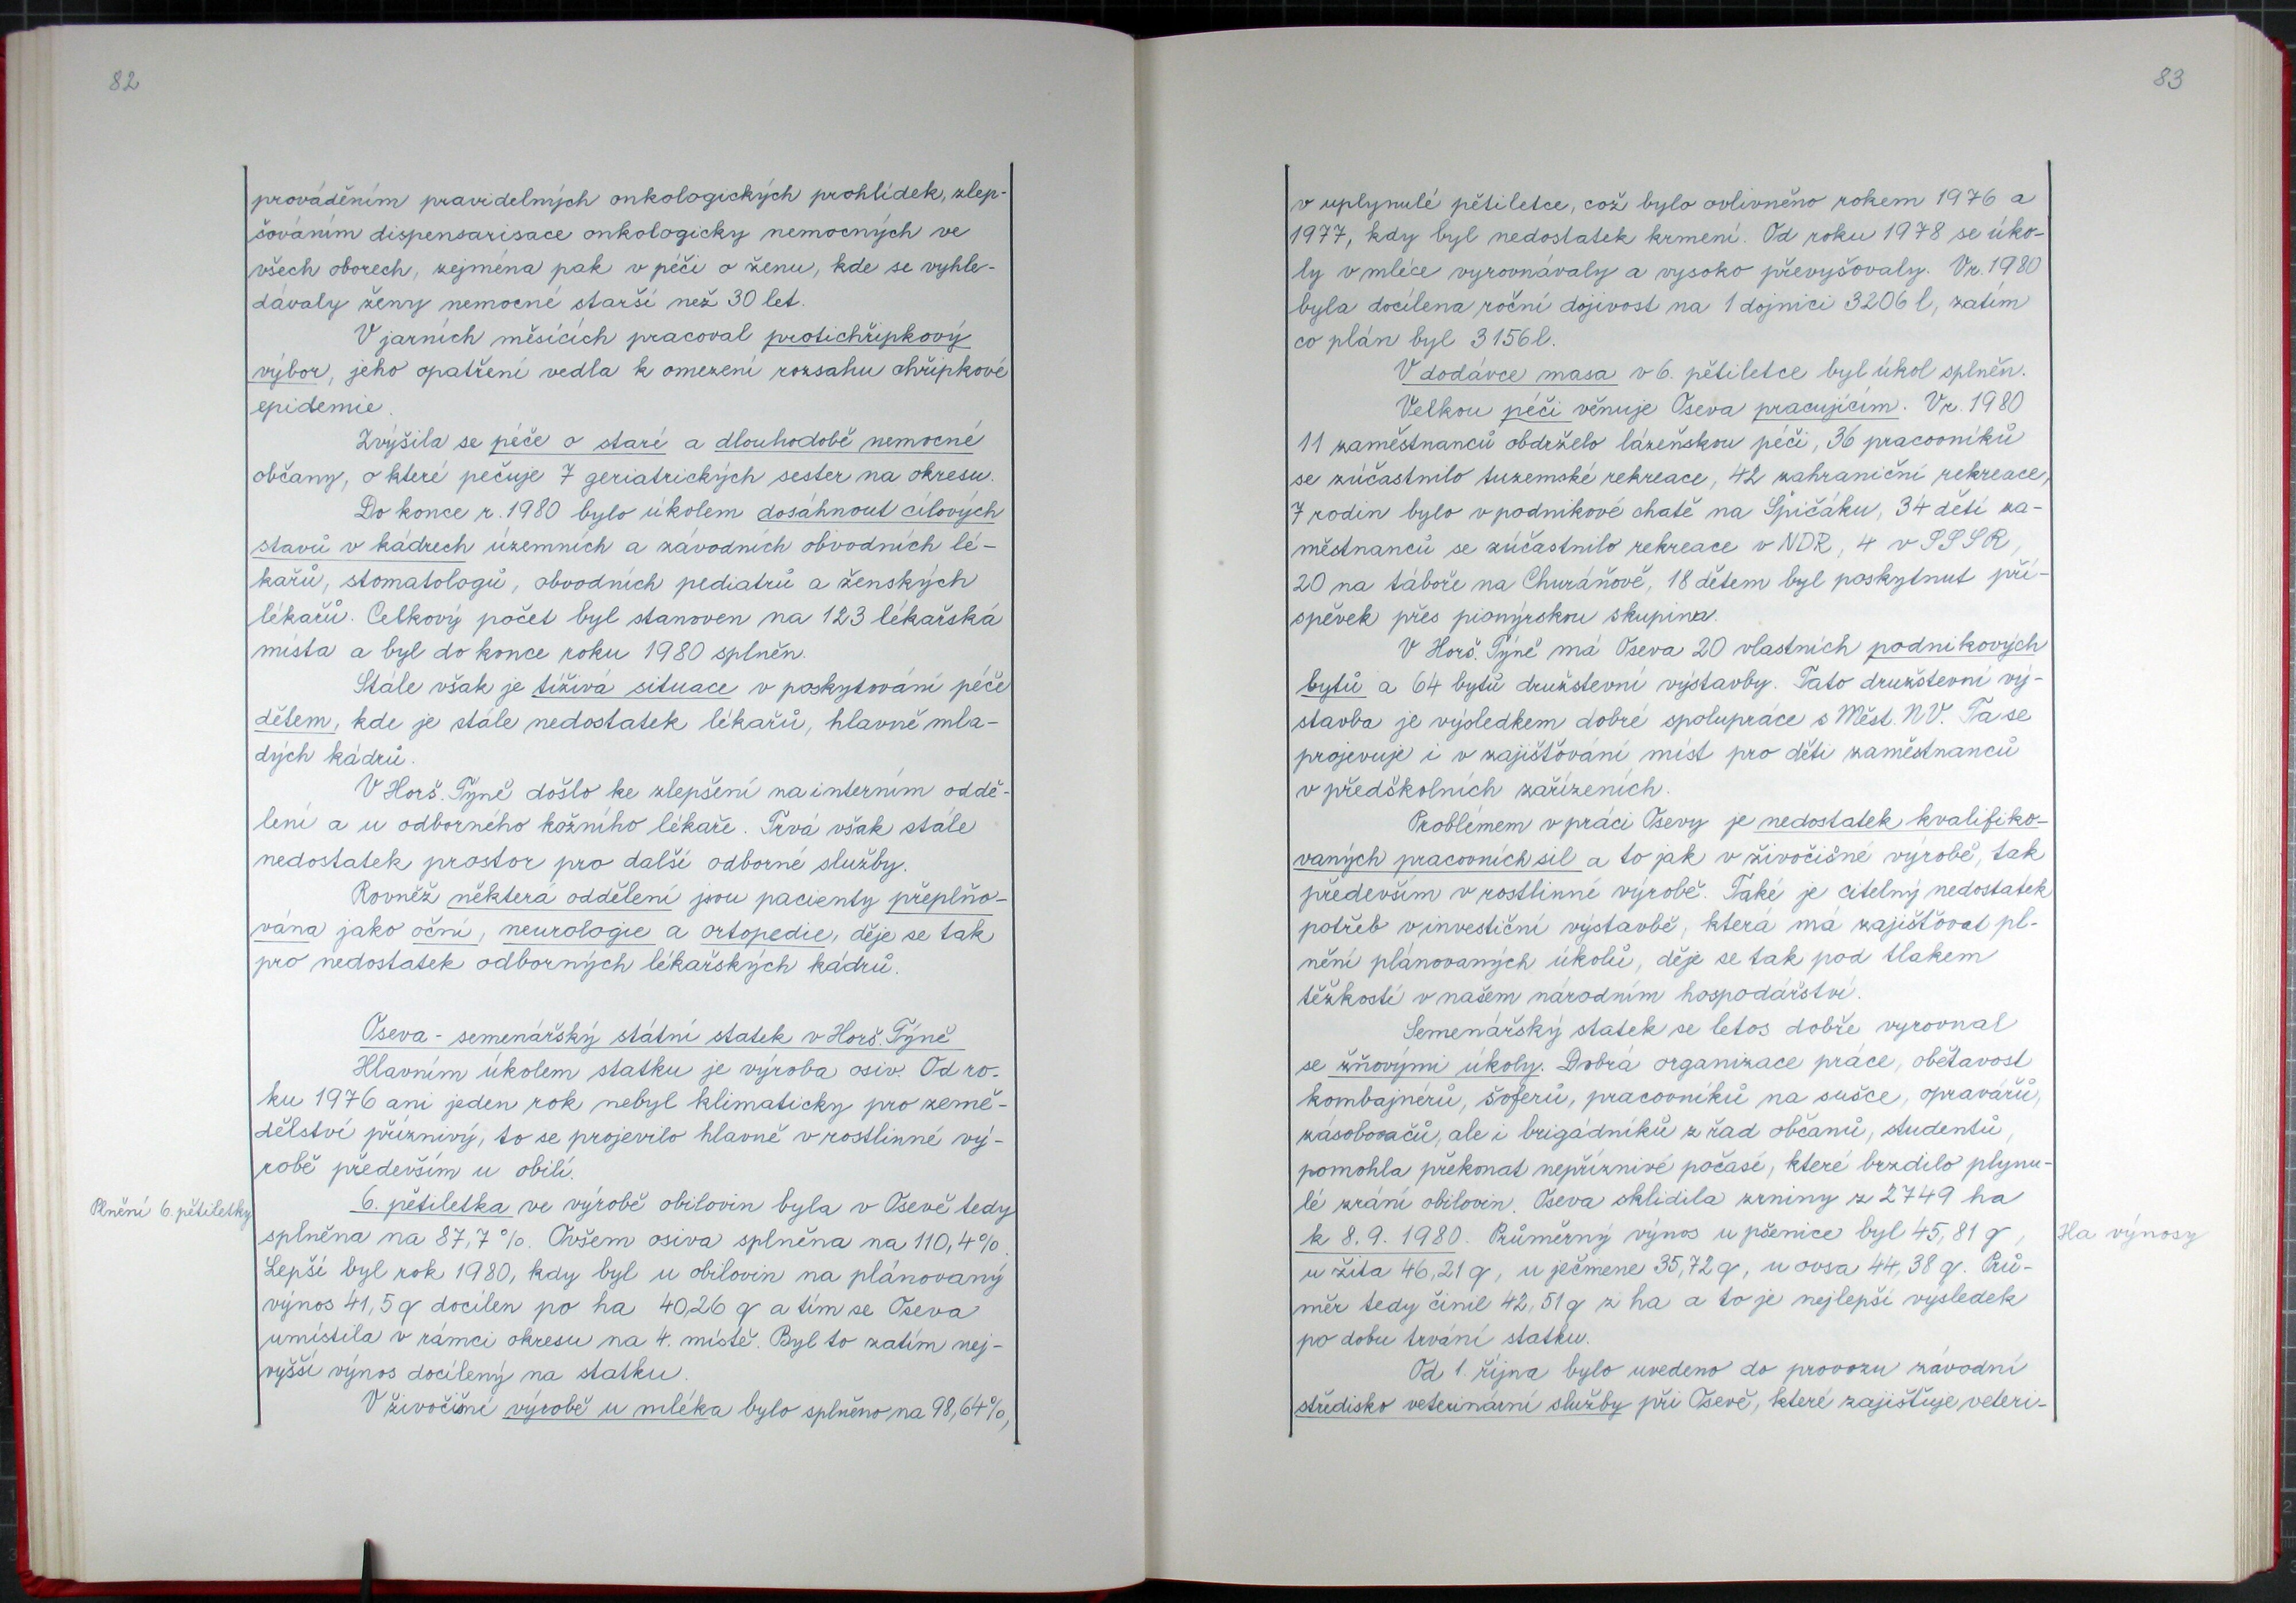 82
prováděním pravidelných onkologických prohlídek, zlep-
šováním dispensarisace onkologicky nemocných ve
všech oborech, zejména pak v péči o ženu, kde se vyhle-
dávaly ženy nemocné starší než 30 let.
V jarních měsících pracoval protichřipkový
výbor, jeho opatření vedla k omezení rozsahu chřipkové
epidemie.
Zvýšila se péče o staré a dlouhodobě nemocné
občany, o které pečuje 7 geriatrických sester na okresu.
Do konce r. 1980 bylo úkolem dosáhnout cílových
stavů v kádrech územních a závodních obvodních lé-
kařů, stomatologů, obvodních pediatrů a ženských
lékařů. Celkový počet byl stanoven na 123 lékařská
místa a byl do konce roku 1980 splněn.
Stále však je tíživá situace v poskytování péče
dětem, kde je stále nedostatek lékařů, hlavně mla-
dých kádrů.
V Horš. Týně došlo ke zlepšení na interním oddě-
lení a u odborného kožního lékaře. Trvá však stále
nedostatek prostor pro další odborné služby.
Rovněž některá oddělení jsou pacienty přeplňo-
vána jako oční, neurologie a ortopedie, děje se tak
pro nedostatek odborných lékařských kádrů.
Oseva - semenářský státní statek v Horš. Týně
Hlavním úkolem statku je výroba osiv. Od ro-
ku 1976 ani jeden rok nebyl klimaticky pro země-
dělství příznivý, to se projevilo hlavně v rostlinné vý-
robě především u obilí.
Plnění 6. pětiletky
6. pětiletka ve výrobě obilovin byla v Osevě tedy
splněna na 87,7 %. Ovšem osiva splněna na 110,4 %.
Lepší byl rok 1980, kdy byl u obilovin na plánovaný
výnos 41,5 q docílen po ha 40,26 q a tím se Oseva
umístila v rámci okresu na 4. místě. Byl to zatím nej-
vyšší výnos docílený na statku.
V živočišné výrobě u mléka bylo splněno na 98,64 %,
83
v uplynulé pětiletce, což bylo ovlivněno rokem 1976 a
1977, kdy byl nedostatek krmení. Od roku 1978 se úko-
ly v mléce vyrovnávaly a vysoko převyšovaly. V r. 1980
byla docílena roční dojivost na 1 dojnici 3206 l, zatím
co plán byl 3156 l.
V dodávce masa v 6. pětiletce byl úkol splněn.
Velkou péči věnuje Oseva pracujícím. V r. 1980
11 zaměstnanců obdrželo lázeňskou péči, 36 pracovníků
se zúčastnilo tuzemské rekreace, 42 zahraniční rekreace,
7 rodin bylo v podnikové chatě na Špičáku, 34 dětí za-
městnanců se zúčastnilo rekreace v NDR, 4 v SSSR,
20 na táboře na Churáňově, 18 dětem byl poskytnut pří-
spěvek přes pionýrskou skupina.
V Horš. Týně má Oseva 20 vlastních podnikových
bytů a 64 bytů družstevní výstavby. Tato družstevní vý-
stavba je výsledkem dobré spolupráce s Měst. NV. Ta se
projevuje i v zajišťování míst pro děti zaměstnanců
v předškolních zařízeních.
Problémem v práci Osevy je nedostatek kvalifiko-
vaných pracovních sil a to jak v živočišné výrobě, tak
především v rostlinné výrobě. Také je citelný nedostatek
potřeb v investiční výstavbě, která má zajišťovat pl-
nění plánovaných úkolů, děje se tak pod tlakem
těžkostí v našem národním hospodářství.
Semenářský statek se letos dobře vyrovnal
se žňovými úkoly. Dobrá organizace práce, obětavost
kombajnérů, šoferů, pracovníků na sušce, opravářů,
zásobovačů, ale i brigádníků z řad občanů, studentů,
pomohla překonat nepříznivé počasí, které brzdilo plynu-
lé zrání obilovin. Oseva sklidila zrniny z 2749 ha
k 8. 9. 1980. Průměrný výnos u pšenice byl 45,81 q,
Ha výnosy
u žita 46,21 q, u ječmene 35,72 q, u ovsa 44,38 q. Prů-
měr tedy činil 42,51 q z ha a to je nejlepší výsledek
po dobu trvání statku.
Od 1. října bylo uvedeno do provozu závodní
středisko veterinární služby při Osevě, které zajišťuje veteri-